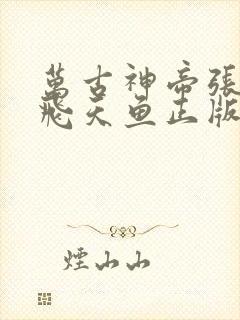 萬古神帝張
飛天魚正版
煙山山